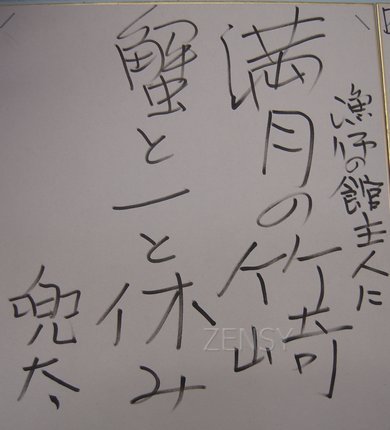 漁火の館主人に
満月の竹崎
蟹と一と休み
兜太
ZENSY